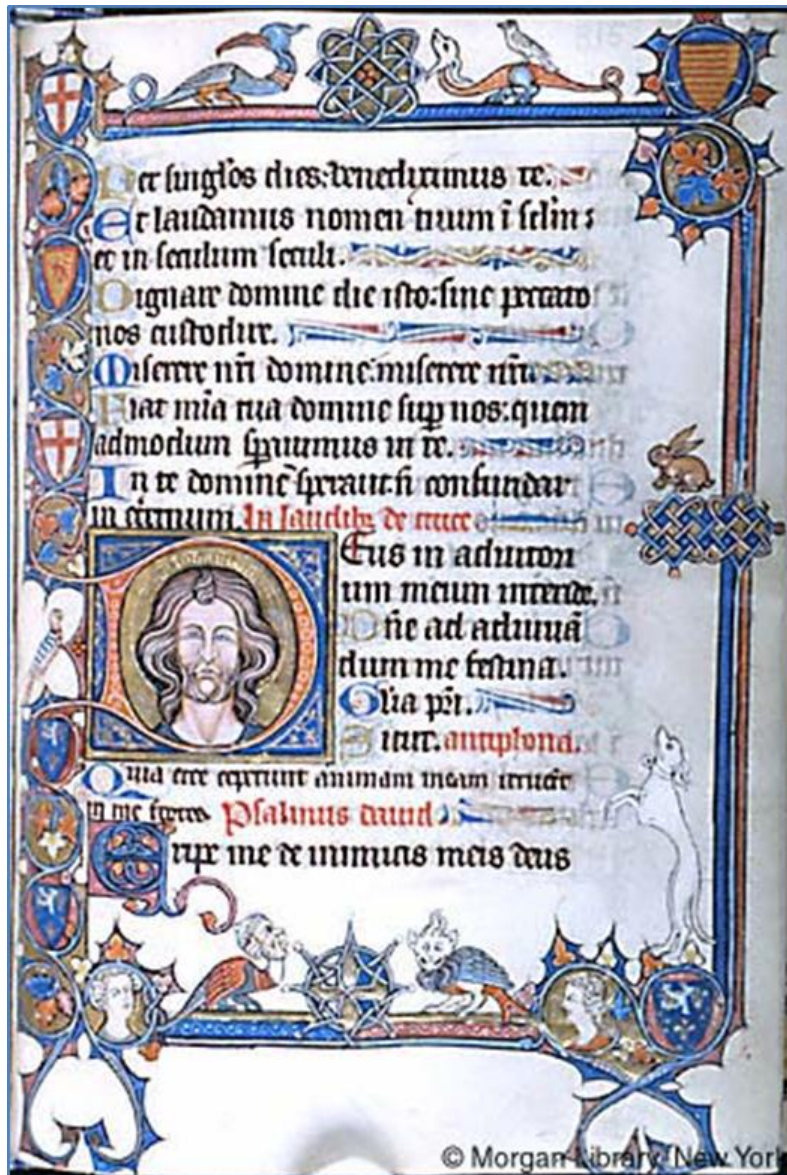 Per singlos dies: benedicimus te.
Et laudamus nomen tuum i sclm :
et in seculum seculi.
Dignare domine die isto: sine peccato
nos custodire.
Miserere nri domine: miserere nri
Fiat mia tua domine sup nos: quem
admodum spauimus in te.
In te domine speraui: n confundar
in eternum. In laudibz de cruce
Deus in adiutori
um meum intende.
Dne ad adiuua
dum me festina.
Glia pri.
Sicut. antiphona.
Quia ecce ceperunt animam meam irruert
in me fortes Psalmus dauid
Eripe me de inimicis meis deus
© Morgan Library, New York